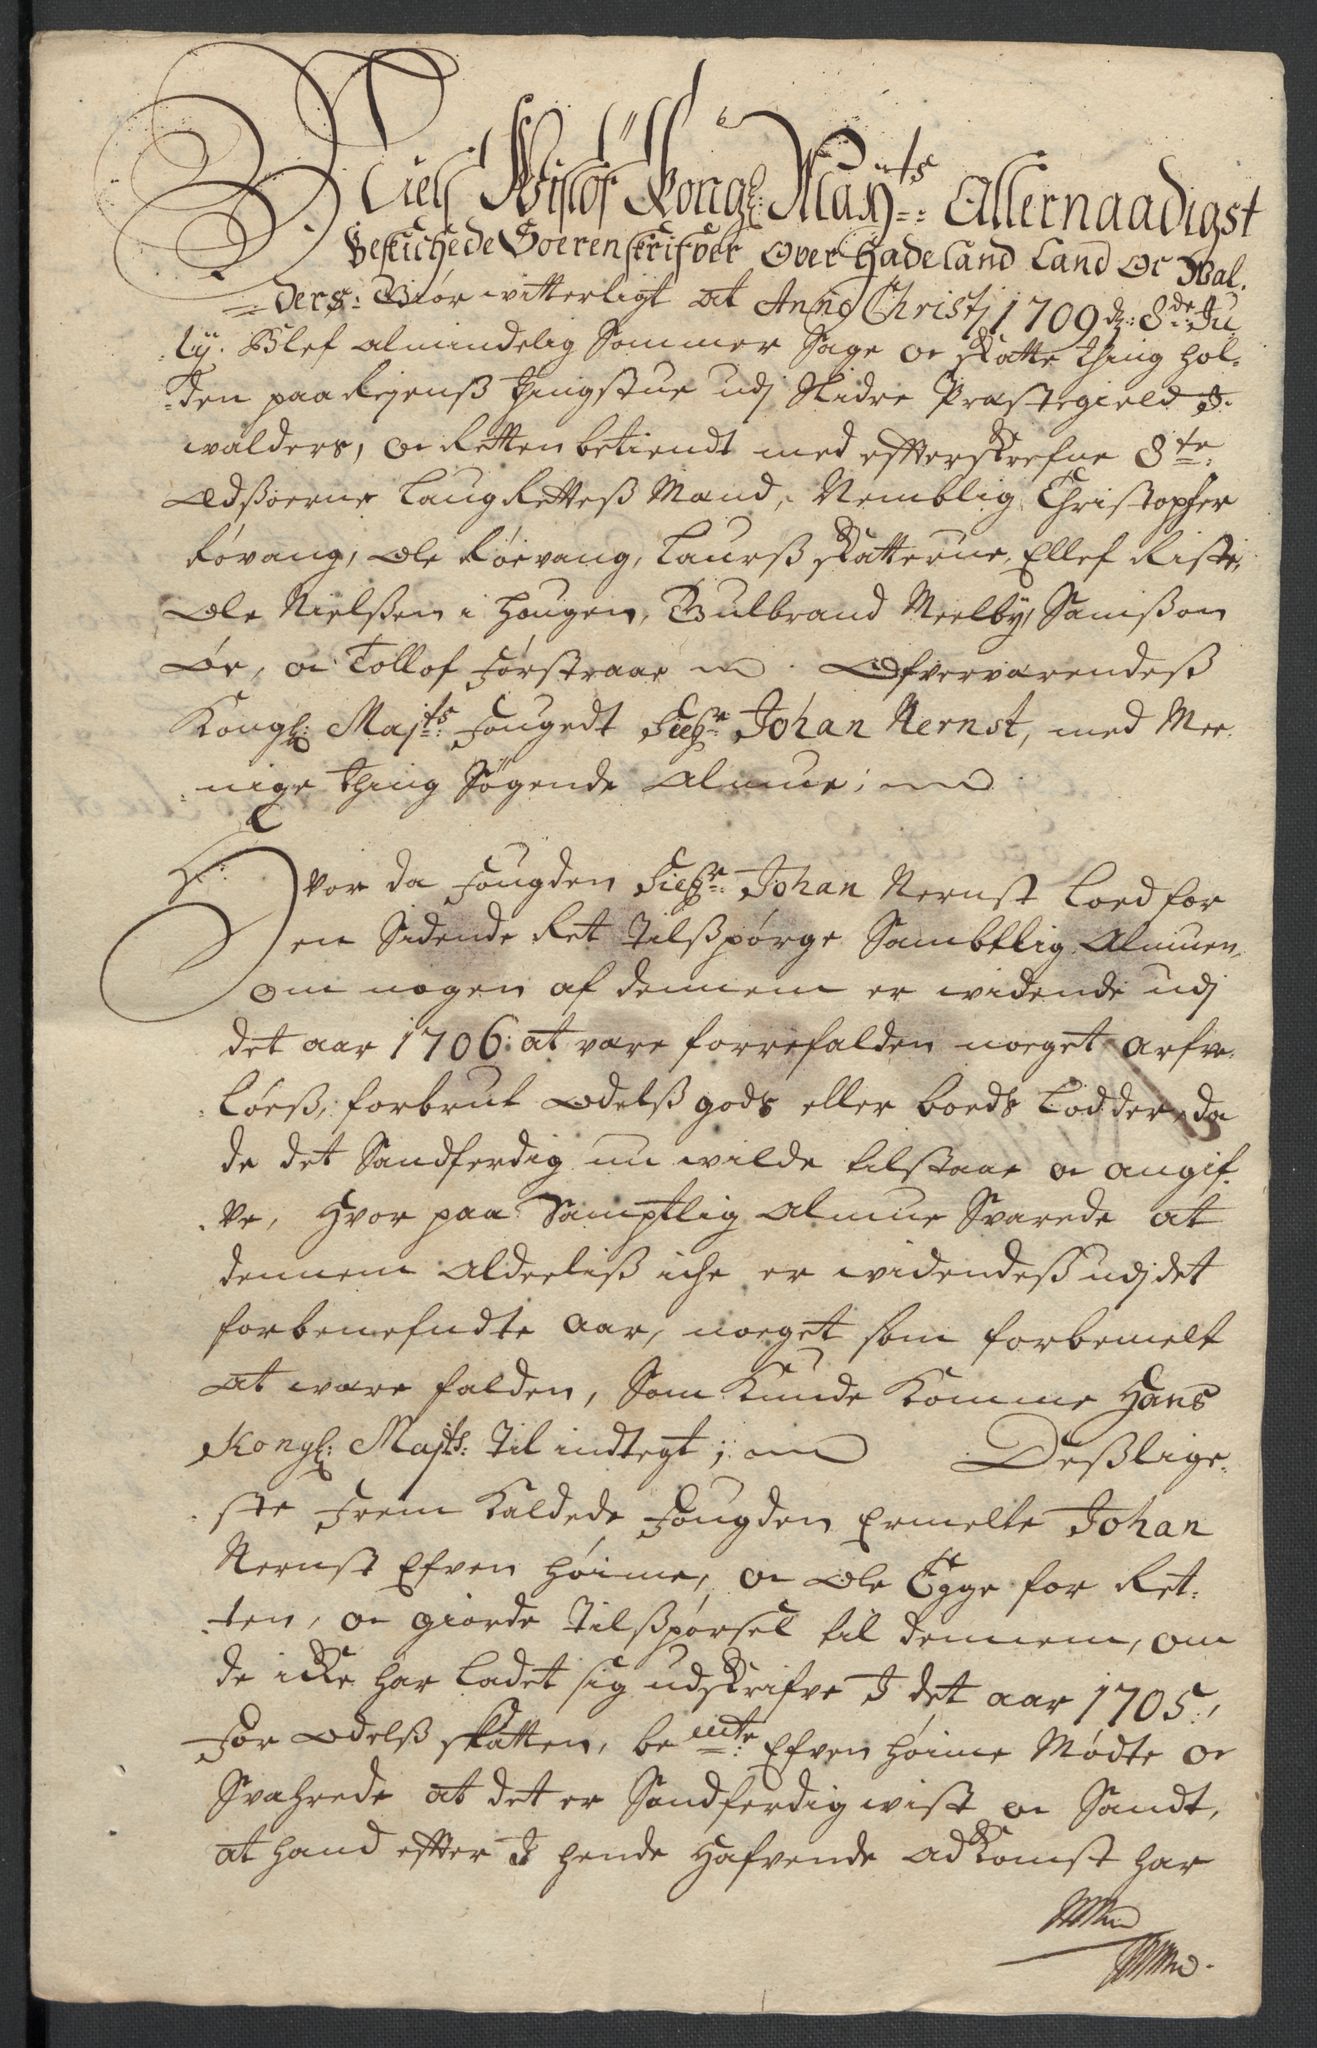 Niels Wisløf Kongl: May:ts Allernaadigst
Beskichede Soerenskrifver Over Hadeland Land Oc Wal-
ders: Giør witterligt at Anno Christj 1709 d: 8de Ju
ly. Blef almindelig Sommer Sage oc skatte thing hol-
den paa Rejenß thingstue udj Slidre Præstegield J.
walders, oc Retten betiendt med effterskrefne 8te
Edßoerne LaugRetteß Mænd, Nemblig Christopher
Røvang, Ole Røevang, Laurß skatterue, Ellef Riste,
Ole Nielßen i Hougen, Gulbrand Meelby, Samßon
Øe, oc Tollof Jørstraae Ofverværendeß
Kongl: Majts: Fougedt Sieg:r Johan Nernst, med Mee-
nige thing Søgende Almue;
Hvor da Fougden Sieg:r Johan Nernst Loed for
en Sidende Ret Tilßpørge Sambtlig Almuen,
om nogen af dennem er widende udj
det aar 1706: at være forrefalden noeget arfve-
Løeß, forbrut Odelß gods eller boeds Lodder, da
de det Sandferdig nu wilde tilstaae oc angif-
ve, Hvor paa Samptlig Almue Svarede at
dennem Aldeeliß iche er widendeß udj det
forbenefndte aar, noeget som forbemelt
at være falden, Som Kunde Komme Hans
Kongl: Majts: Til indtegt; Deßlige-
ste Frem Kaldede Fougden Ermelte Johan
Nernst Efven Høime, oc Ole Egge for Ret-
ten, oc giorde Tilßpørsel til dennem, om
de icke har Ladet sig udskrifve J det aar 1705,
For Odelß skatten, bemte: Efven Høime Mødte oc
Svahrede at det er Sandferdig wist oc Sandt,
at hand effter J hende Hafvende adkomst har